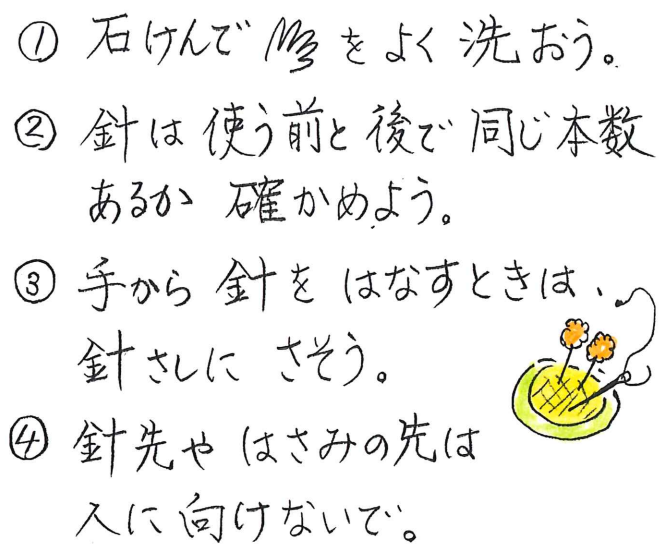 ① 石けんで をよく洗おう。
② 針は使う前と後で同じ本数
あるか 確かめよう。
③ 手から 針を はなすときは、
針さしに さそう。
④ 針先や はさみの先は
人に向けないで。